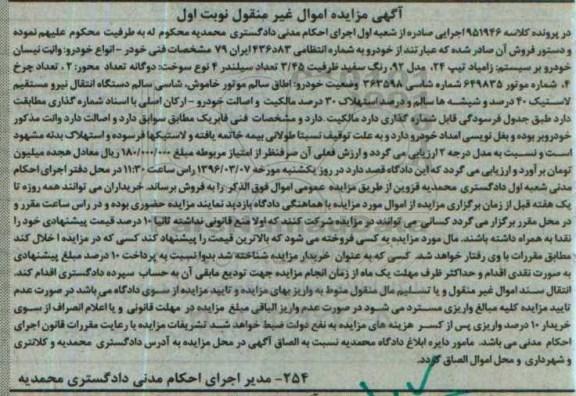 آگهی مزایده اموال غیر منقول نوبت اول
در پرونده کلاسه ۹۵۱۹۴۶ اجرایی صادره از شعبه اول اجرای احکام مدنی دادگستری محمدیه محکوم له به طرفیت محکوم علیهم نموده
و دستور فروش آن صادر شده که عبارتند از خودرو به شماره انتظامی ۴۳۶د۸۳ ایران ۷۹ مشخصات فنی خودر - انواع خودرو: وانت نیسان
خودرو بر سیستم: زامیاد تیپ ۲۴، مدل ۹۲، رنگ سفید ظرفیت ۳/۴۵ تعداد سیلندر ۴ نوع سوخت: دوگانه تعداد محور: ۲، تعداد چرخ
۴، شماره موتور ۶۴۹۸۳۵ شماره شاسی ۳۶۳۵۹۸ وضعیت خودرو: اطاق سالم موتور خاموش، شاسی سالم دستگاه انتقال نیرو مستقیم
لاستیک ۴۰ درصد و شیشه ها سالم و درصد استهلاک ۳۰ درصد مالکیت و اصالت خودرو - ارکان اصلی با اسناد شماره گذاری مطابقت
دارد طبق جدول فرسودگی قابل شماره گذاری دارد مالکیت. دارد و مشخصات فنی فابریک مطابق سوابق دارد و اصالت دارد وانت مذکور
خودرویر بوده و بغل نویسی امداد خودرو دارد و به علت توقیف نسبتا طولانی بیمه خاتمه یافته و لاستیکها فرسوده و استهلاک بدنه مشهود
است و نسبت به مدل درجه ۲ ارزیابی می گردد و ارزش فعلی آن سرفنظر از امتیاز مربوطه مبلغ ۱۸۰/۰۰۰/۰۰۰ ریال معادل هجده میلیون
تومان برآورد و ارزیابی می گردد که این دادگاه قصد دارد در روز یکشنبه مورخه ۱۳۹۶/۰۳/۰۷ راس ساعت ۱۱:۳۰ در محل دفتر اجرای احکام
مدنی شعبه اول دادگستری محمدیه قزوین از طریق مزایده عمومی اموال فوق الذکر را به فروش برساند. خریداران می توانند همه روزه تا
یک هفته قبل از زمان برگزاری مزایده از اموال مورد مزایده با هماهنگی دادگاه بازدید نمایند مزایده حضوری بوده و در راس ساعت مقرر و
در محل مقرر برگزار می گردد کسانی می توانند در مزایده شرکت کنند که اولا منع قانونی نداشته ثانیا ۱۰ درصد قیمت پیشنهادی خود را
نقدا به همراه داشته باشند. مال مورد مزایده به کسی فروخته می شود که بالاترین قیمت را پیشنهاد کند کسی که در مزایده اخلال کند
مطابق مقررات با وی رفتار خواهد شد. کسی که به عنوان خریدار مزایده شناخته شد بدوا نسبت به پرداخت ۱۰ درصد مبلغ پیشنهادی
به صورت نقدی اقدام و حداکثر ظرف مهلت یک ماه از زمان انجام مزایده جهت تودیع مابقی آن به حساب سپرده دادگستری اقدام کند.
انتقال سند اموال غیر منقول و یا تسلیم مال منقول منوط به واریز بهای مزایده و تایید مزایده از سوی دادگاه می باشد در صورت عدم
تایید مزایده کلیه مبالغ واریزی مسترد می شود در صورت عدم واریز الباقی مبلغ مزایده در مهلت قانونی و یا اعلام انصراف از سوی
خریدار ۱۰ درصد واریزی پس از کسر هزینه های مزایده به نفع دولت ضبط خواهد شد تشریفات مزایده با رعایت مقررات قانون اجرای
احکام مدنی می باشد. مامور دایره ابلاغ دادگاه محمدیه نسبت به الصاق آگهی در محل مزایده به آدرس دادگستری محمدیه و کلانتری
و شهرداری و محل اموال الصاق گردد.
۲۵۴- مدیر اجرای احکام مدنی دادگستری محمدیه